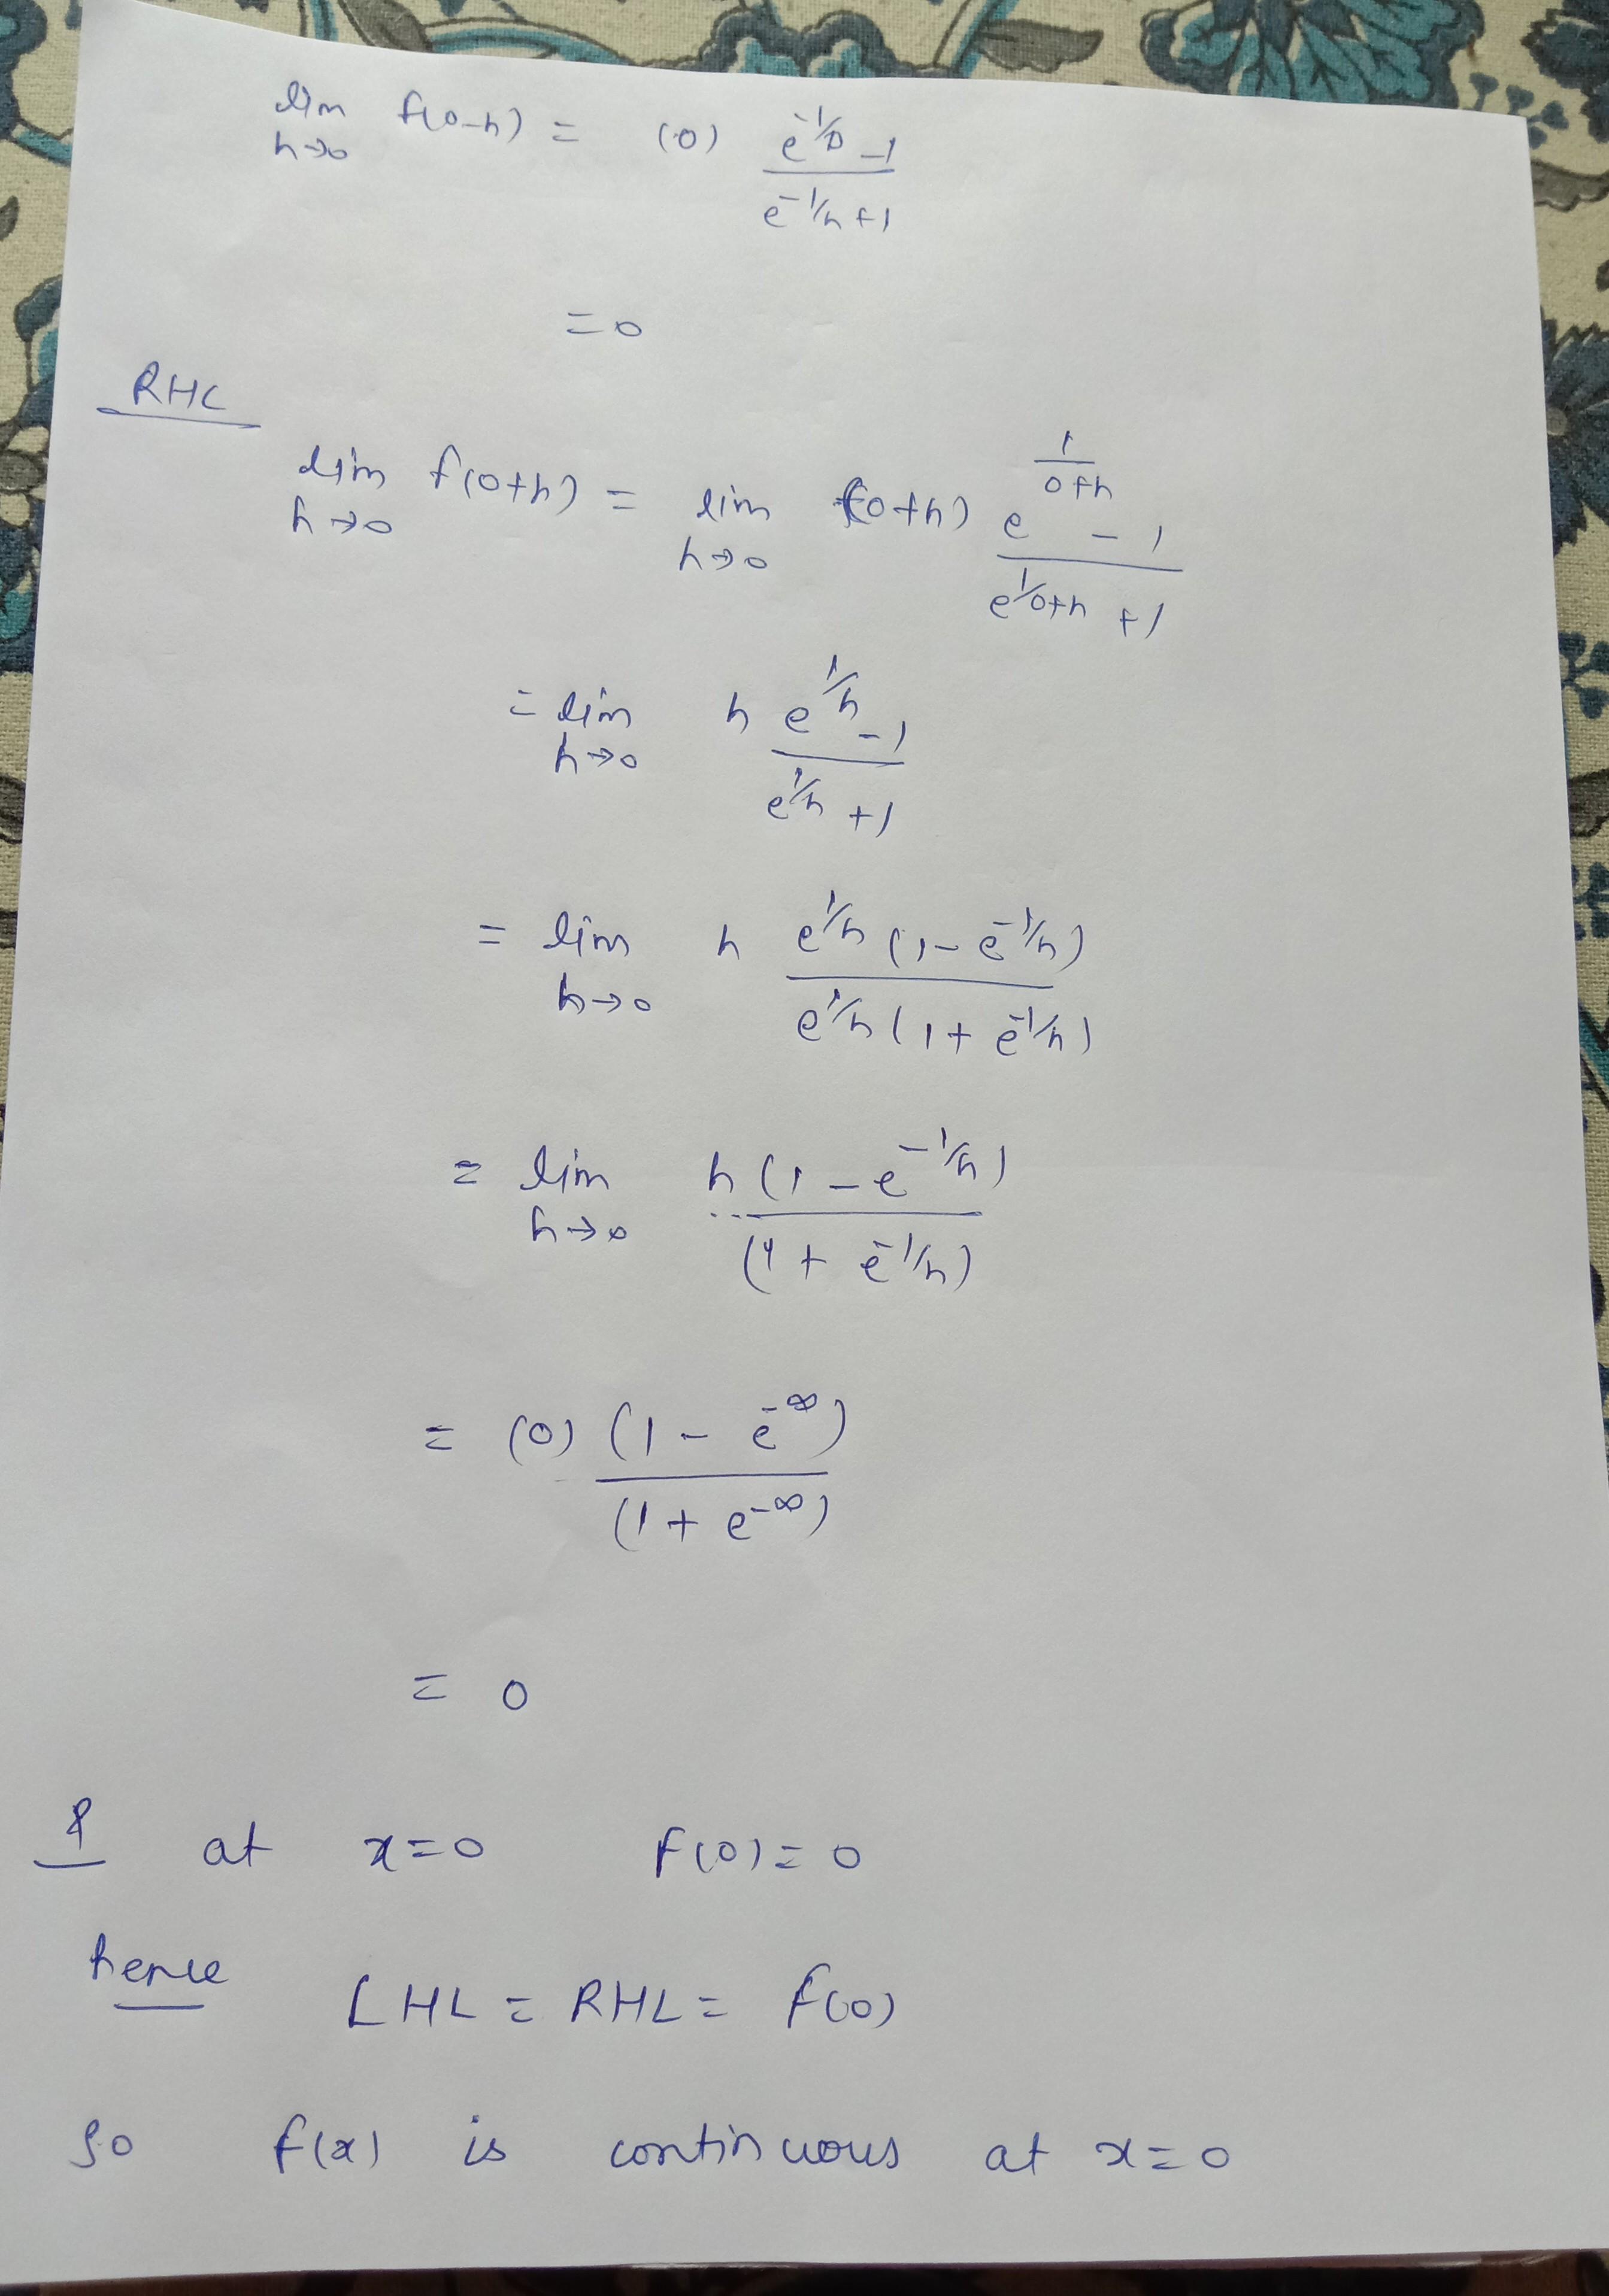 lim f(0-h) = (0) e^-1/0 -1
h→0 e^-1/h +1
= 0
RHL
lim f(0+h) = lim (0+h) e^1/0+h - 1
h→0 h→0 e^1/0+h +1
= lim h e^1/h -1
h→0 e^1/h +1
= lim h e^1/h (1- e^-1/h)
h→0 e^1/h (1+ e^-1/h)
= lim h (1 - e^-1/h)
h→0 (1 + e^-1/h)
= (0) (1 - e^-∞)
(1 + e^-∞)
= 0
& at x=0 f(0) = 0
hence LHL = RHL = f(0)
so f(x) is continuous at x=0